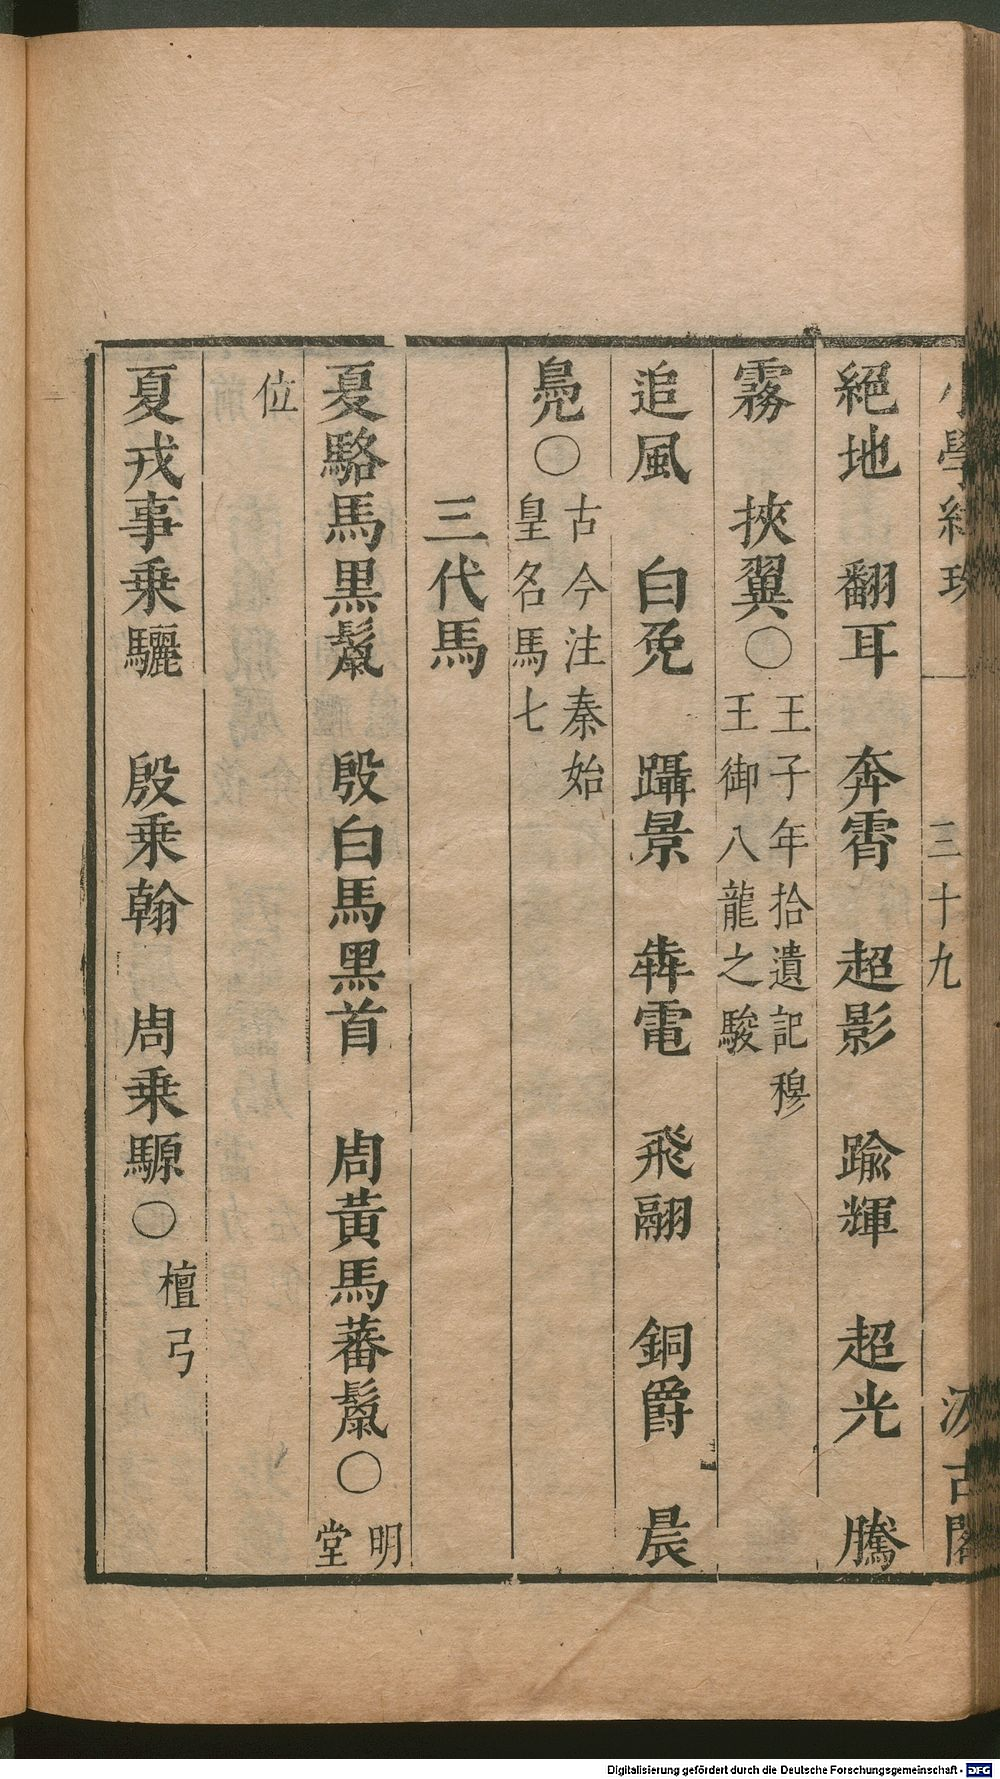 小學紺珠 三十九 汲古閣
絕地 翻耳 奔霄 超影 踰輝 超光 騰
霧 挾翼○王子年拾遺記穆王御八龍之駿
追風 白兔 躡景 犇電 飛翮 銅爵 晨
鳧○古今注秦始皇名馬七
三代馬
夏駱馬黑鬣 殷白馬黑首 周黃馬蕃鬣○明堂
位
夏戎事乘驪 殷乘翰 周乘騵○檀弓
Digitalisierung gefördert durch die Deutsche Forschungsgemeinschaft - DFG